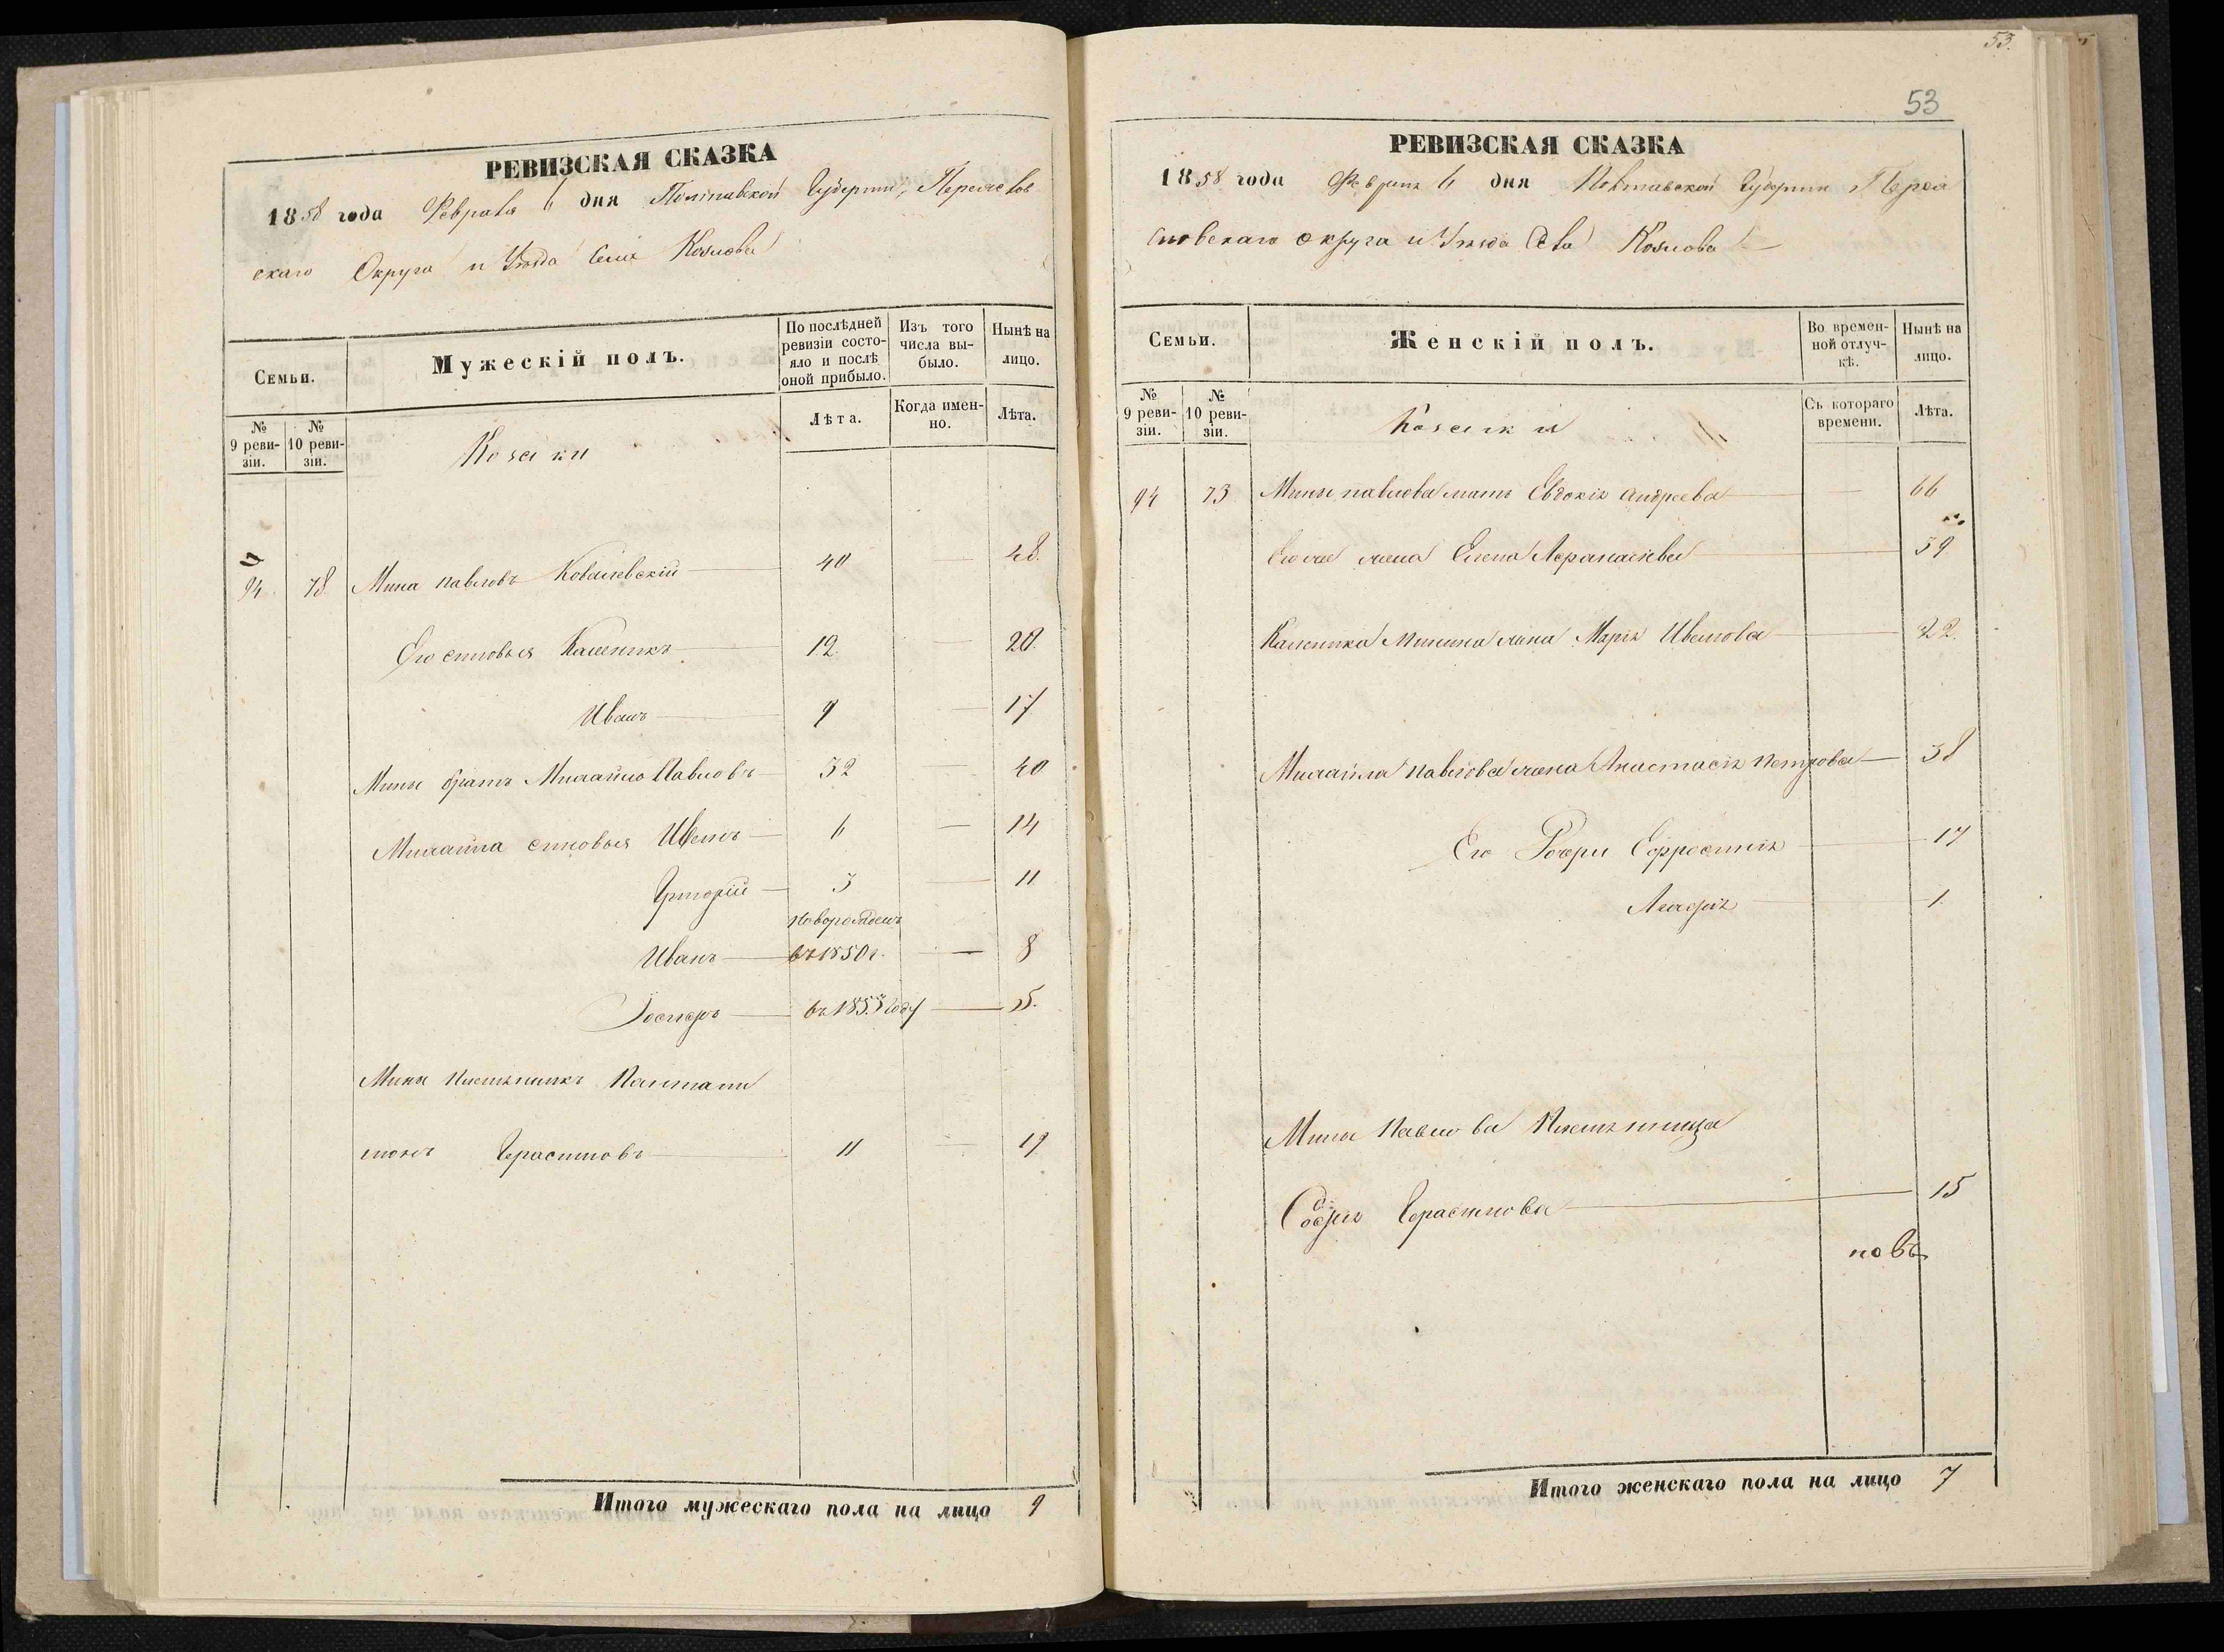 РЕВИЗСКАЯ СКАЗКА
1858 года Февраля 6 дня Полтавской Губерніи, Переяслов
скаго Округа и Уѣзда Села Козлова
Семьи.
Мужескій полъ.
По послѣдней ревизіи состояло и послѣ оной прибыло.
Изъ того числа выбыло.
Нынѣ на лицо.
№ 9 ревизіи.
№ 10 ревизіи.
Козаки
Лѣта.
Когда именно.
Лѣта.
94. 78. Мина Павловъ Ковалевскій — 40 — 48.
Его сыновья Каленикъ — 12. — 20.
Иванъ — 9 — 17
Мины братъ Михайло Павловъ — 32 — 40
Михайла сыновья Иванъ — 6 — 14
Григорій — 3 — 11
новорожденъ
Иванъ — въ 1850 г. — 8
въ 1853 году — 5.
Мины племянникъ Пантели
монъ Герасимовъ — 11 — 19
Итого мужескаго пола на лицо 9
53.
53
РЕВИЗСКАЯ СКАЗКА
1858 года Февраля 6 дня Полтавской Губерніи Переа
словскаго округа и Уѣзда Села Козлова
Семьи.
Женскій полъ.
Во временной отлучкѣ.
Нынѣ на лицо.
№ 9 ревизіи.
№ 10 ревизіи.
Козачки
Съ котораго времени.
Лѣта.
94 73 Мины павлова мать Евдокія Андреева — 66
Его же жена Елена Афанасіева — 39
Каленика Минина жена Марія Иванова — 22.
Михайла Павлова жена Анастасія Петрова — 38
Его Дочери Ефросинія — 17
— 1.
Мины Павлова Племянница
Софія Герасимова — 15
Итого женскаго пола на лицо 7